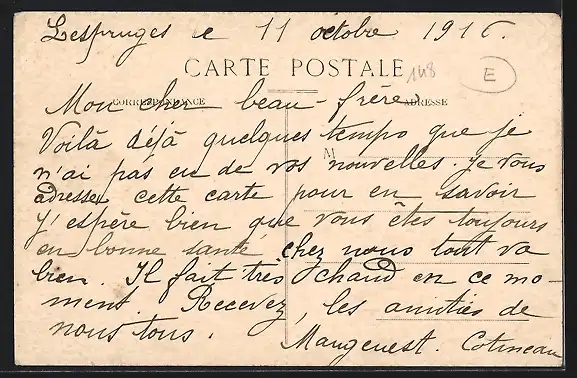 Lespruges le 11 octobre 1916.
148
E
CARTE POSTALE
CORRESPONDANCE ADRESSE
Mon cher beau-frère,
Voilà déjà quelques tempo que je
M
n'ai pas eu de vos nouvelles. Je vous
adresse cette carte pour en savoir
J'espère bien que vous êtes toujours
en bonne santé, chez nous tout va
bien. Il fait très chaud en ce mo-
ment. Recevez, les amitiés de
nous tous.
Maugenest. Cotineau